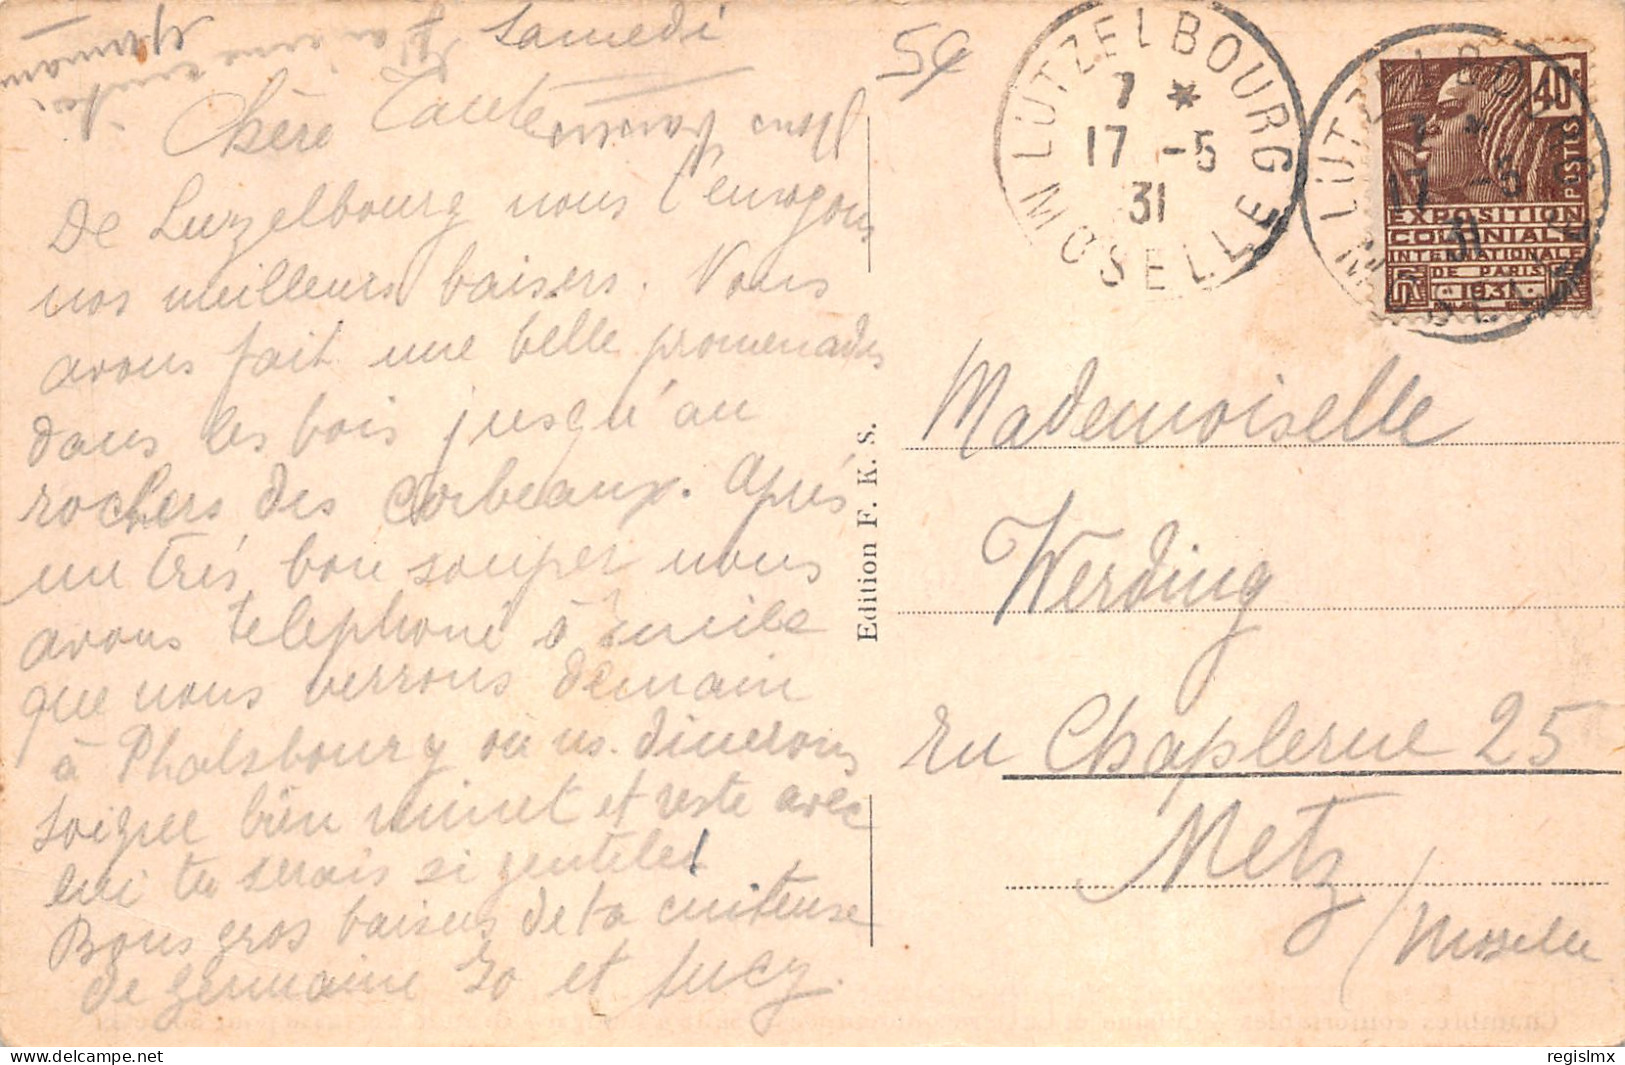 Samedi
Chère Tante
De Luzelbourg nous t'envoyons
nos meilleurs baisers. Nous
avons fait une belle promenades
dans les bois jusqu'au
rochers des Corbeaux. Après
un très bon souper nous
avons telephoné à Emile
que nous verrons demain
à Phalsbourg ou ns. dinerons
soigne bien minet et reste avec
lui tu serais si gentille!
Bons gros baisers de ta
de Germaine Jo et Lucy.
59
LUTZELBOURG
7 *
17 -5
31
MOSELLE
LUTZELBOURG
7 *
17 -5
31
MOSELLE
40c
POSTES
EXPOSITION
COLONIALE
INTERNATIONALE
DE PARIS
1931
Edition F. K. S.
Mademoiselle
Werding
En Chaplerue 25
Metz
(Moselle
regislmx